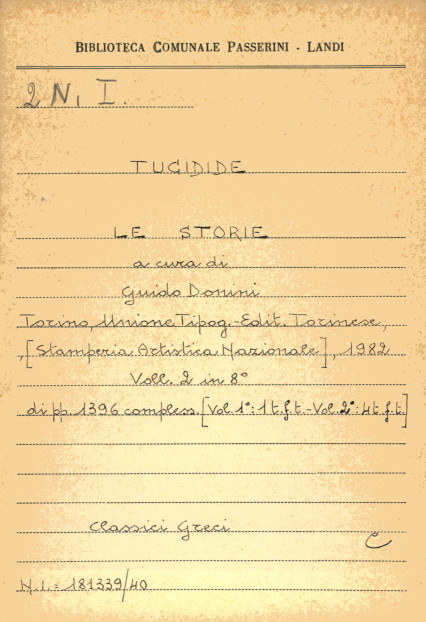 BIBLIOTECA COMUNALE PASSERINI - LANDI
2 N. I.
TUCIDIDE
LE STORIE
a cura di
Guido Donini
Torino, Unione Tipog.-Edit. Torinese,
[Stamperia Artistica Nazionale], 1982
Voll. 2 in 8°
di pp. 1396 compless. [Vol. 1°: 1 t.f.t.-Vol. 2°: 4 t.f.t.]
Classici Greci
C
N.I.= 181339/40